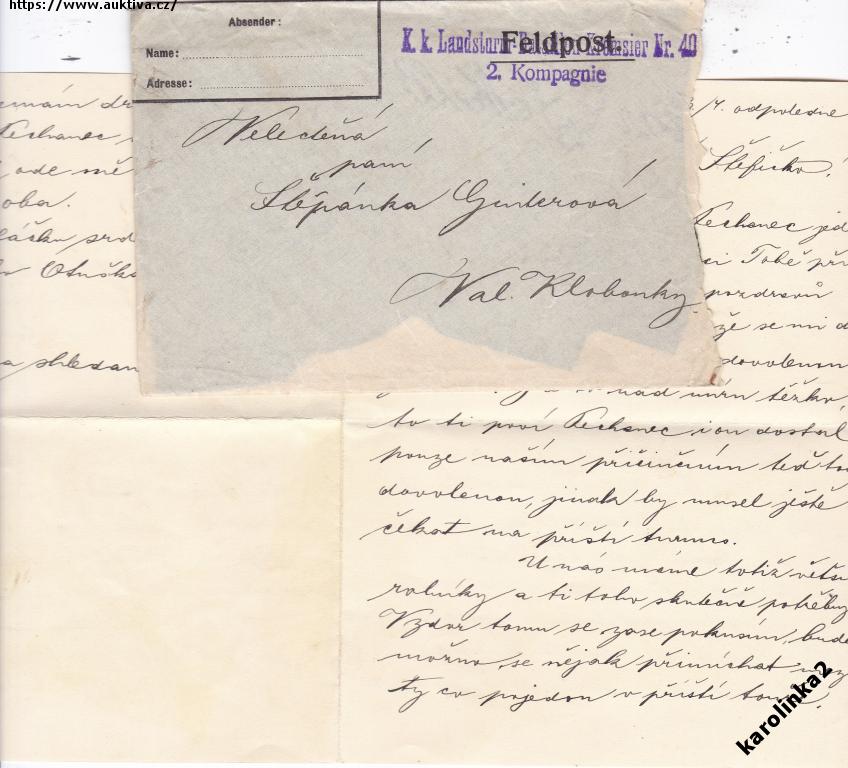 https://www.auktiva.cz/
Absender:
Name:
Adresse:
K. k. Landsturm-Bataillon Kremsier Nr. 40
Feldpost.
2. Kompagnie
Veledená
paní
Štěpánka Ginterová
Val. Klobouky.
nemám
Pechanec
ode mě
oba.
srd
Otušk
a shledan
/4. odpoledne
Štěfičko!
Pechanec jed
ci Tobě při
pozdravů
že se mi d
dovolenou
nad míru těžko,
to ti poví Pechanec i on dostal
pouze naším přičiněním teď to
dovolenou, jinak by musel ještě
čekat na příští turnus.
U nás máme totiž větši
rolníky a ti toho skutečně potřebuj
Vzdor tomu se zase pokusím, bude
možno se nějak přimíchat mez
ty co pojedou v příští
karolinka2